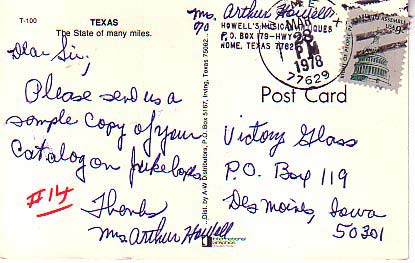 T-100
TEXAS
The State of many miles.
Mrs. Arthur Howell
c/o HOWELL'S MUSICAL ANTIQUES
P. O. BOX 179-HWY
NOME, TEXAS 77629
MAR
28
PM
1978
77629
Dear Sir,
Please send us a
sample copy of your
Catalog on jukeboxes
#14
Thanks
Mrs Arthur Howell
Dist. by A-W Distributors, P.O. Box 5167, Irving, Texas 75062
Post Card
Victory Glass
P.O. Box 119
Des Moines, Iowa
50301